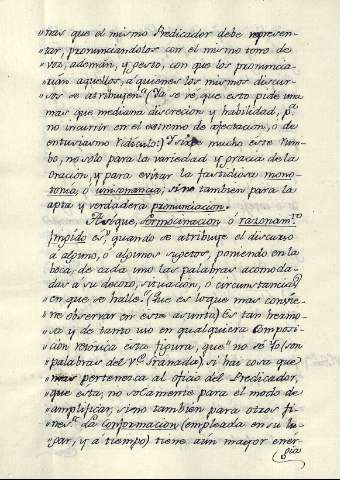 "nas que el mismo Predicador debe represen-
"tar, pronunciandolos con el mismo tono de
"voz, ademán, y gesto, con que los pronuncia-
"rían aquellos, a quienes los mismos discur-
"sos se atribuyen." (Ya se ve, que esto pide una
"mas que mediana discrecion y habilidad, pa.
"no incurrir en el extremo de afectacion, o de
"entusiasmo ridiculo:) Y sirve mucho este rum-
"bo, no solo para la variedad y gracia de la
"oración, y para evitar la fastidiosa mono-
"tonia, ò unisonancia; sino tambien para la
"apta y verdadera pronunciacion.
"Asi que, Sermocinacion ò razonam.to
"fingido es, quando se atribuye el discurso
"a alguno, ò algunos sugetos, poniendo en la
"boca de cada uno las palabras acomoda-
"das a su decoro, situacion, ò circunstancias
"en que se halle." (Que es lo que mas convie-
"ne observar en este asunto) Es tan hermo-
"sa y de tanto uso en qualquiera composi-
"cion retorica esta figura, que "no se Yo (son
"palabras del V.e Granada) si hai cosa que
"mas pertenezca al oficio del Predicador,
"que esta, no solamente para el modo de
"amplificar, sino tambien para otros fi-
"nes." La Conformacion (empleada en su lu-
"gar, y á tiempo) tiene aun mayor ener-
gia